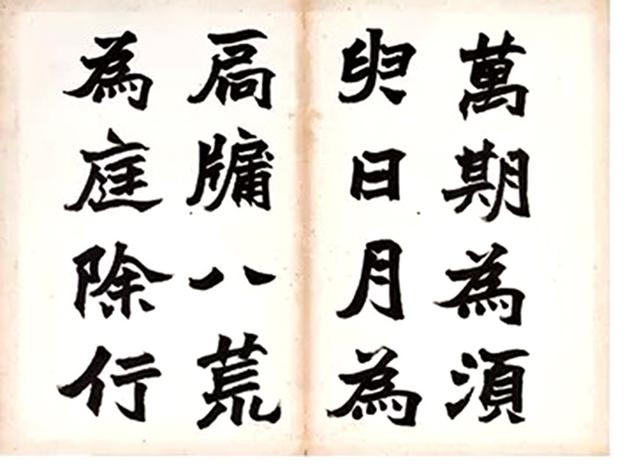 萬期為須
臾日月為
扃牖八荒
為庭除行